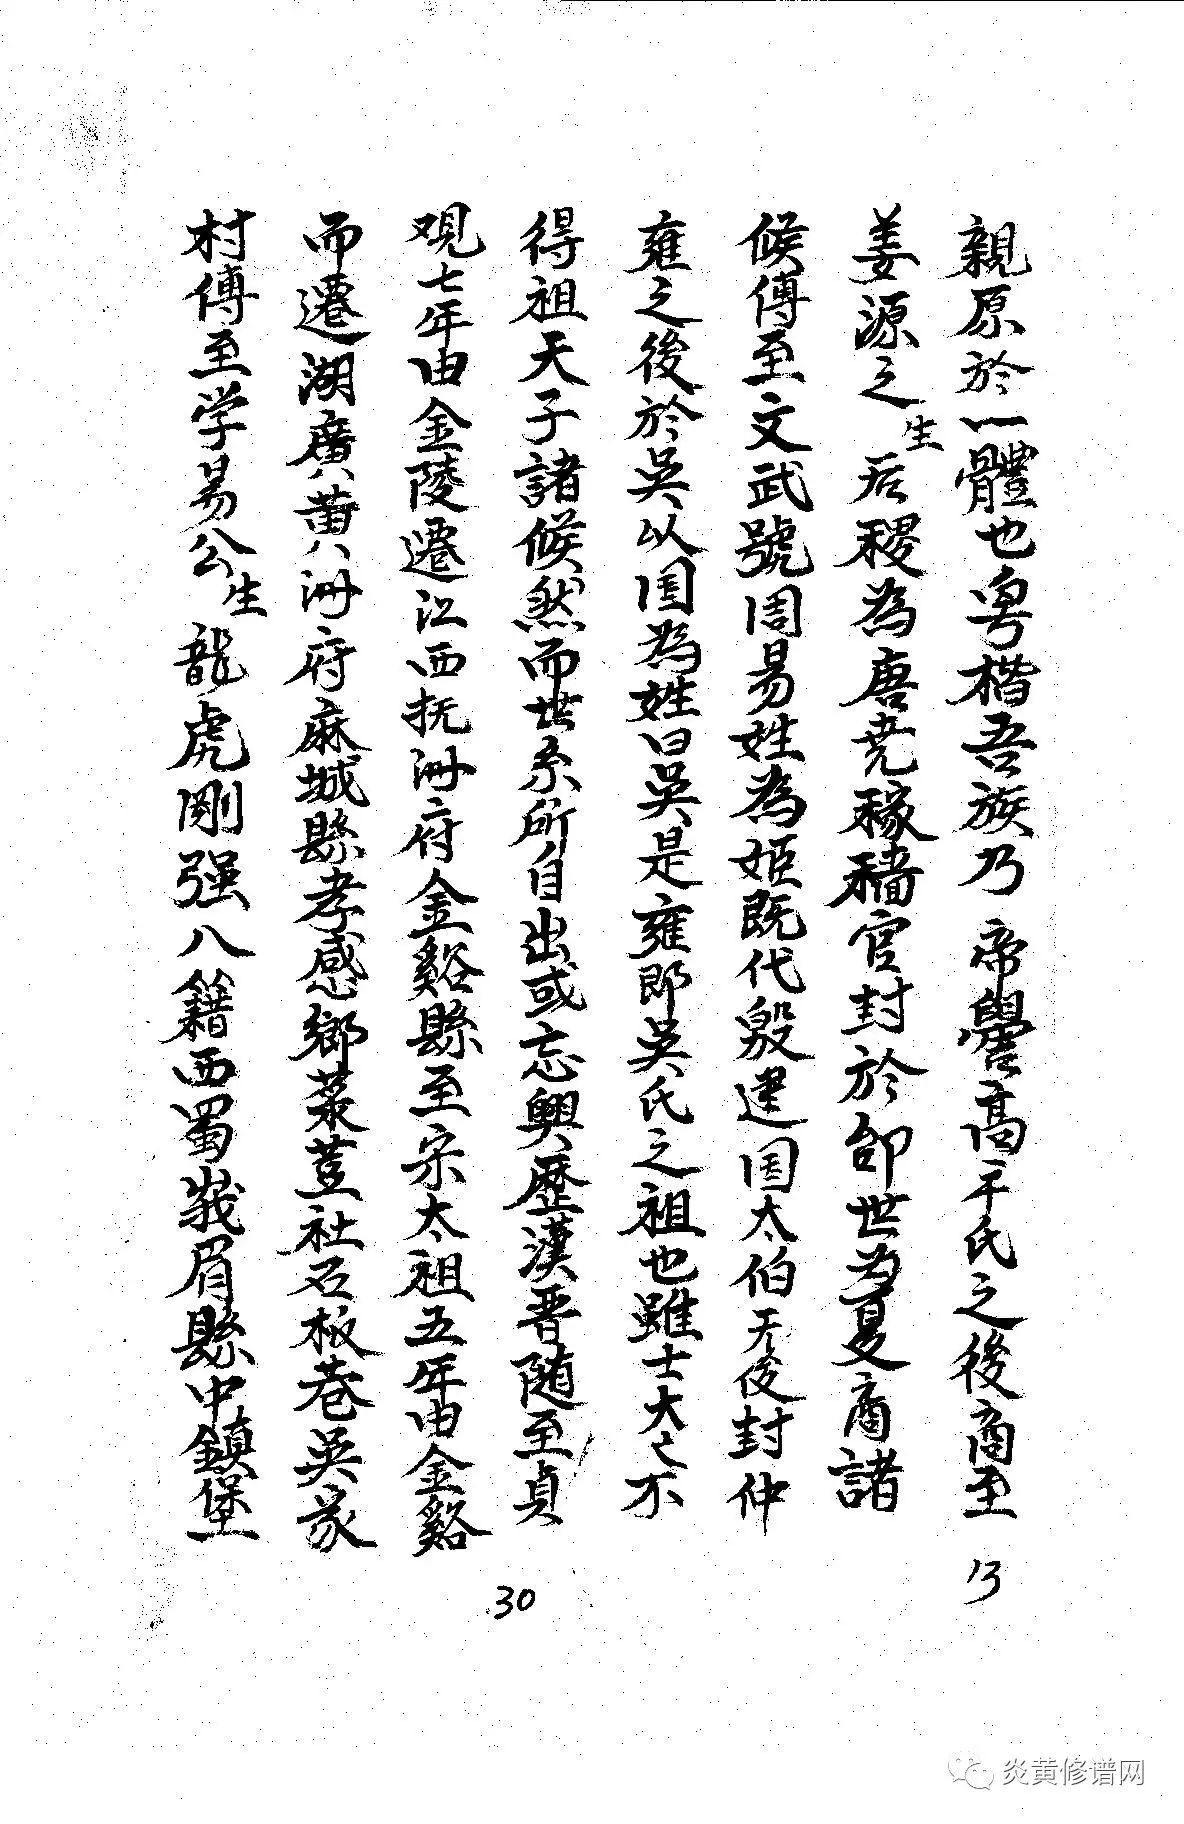 親原於一體也粤楷吾族乃帝嚳高辛氏之後商至
姜源之生后稷為唐尭稼穡官封於邰世为夏商諸
候傅至文武號周易姓為姬既代殷建国太伯无後封仲
雍之後於吳以国為姓曰吳是雍即吳氏之祖也雖士大亡不
得祖天子諸候然而世系所自出或忘興歴漢晋随至貞
观七年由金陵遷江西抚洲府金谿縣至宋太祖五年由金谿
而遷湖廣黄洲府麻城縣孝感鄉菉荳社石板巷吳家
村傅至学易公生龍虎剛强八籍西蜀峩眉縣中鎮堡
13
30
炎黄修谱网